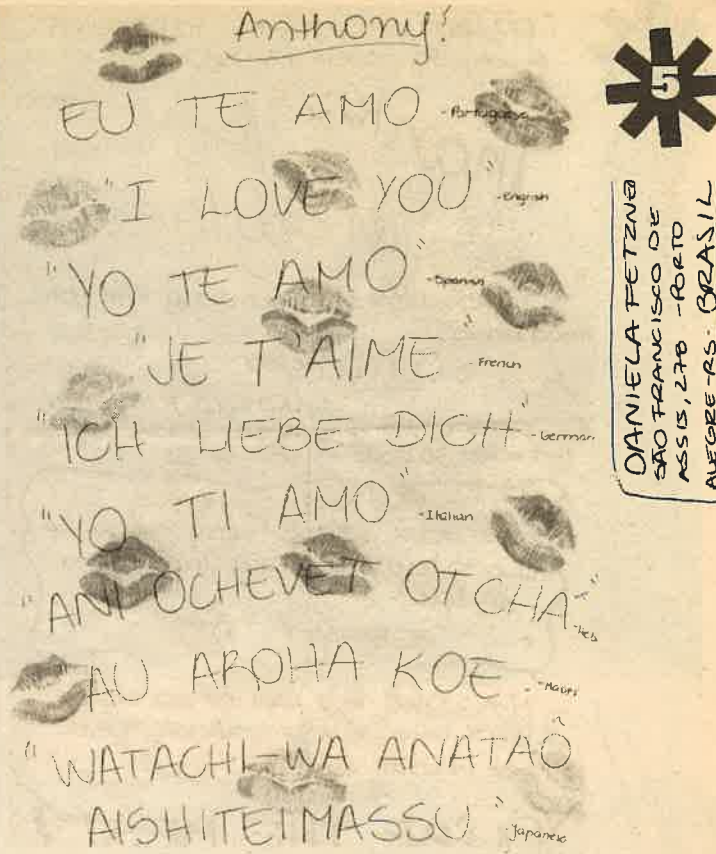 Anthony!
EU TE AMO - Portuguese
"I LOVE YOU" - English
"YO TE AMO" - Spanish
"JE T'AIME - French
"ICH LIEBE DICH" - German
"YO TI AMO" - Italian
"ANI OCHEVET OTCHA"
AU AROHA KOE - Maori
"WATACHI-WA ANATAÕ
AISHITEIMASSU" - Japanese
5
DANIELA FETZNER
SÃO FRANCISCO DE
ASSIS, 278 - PORTO
ALEGRE-RS. BRASIL